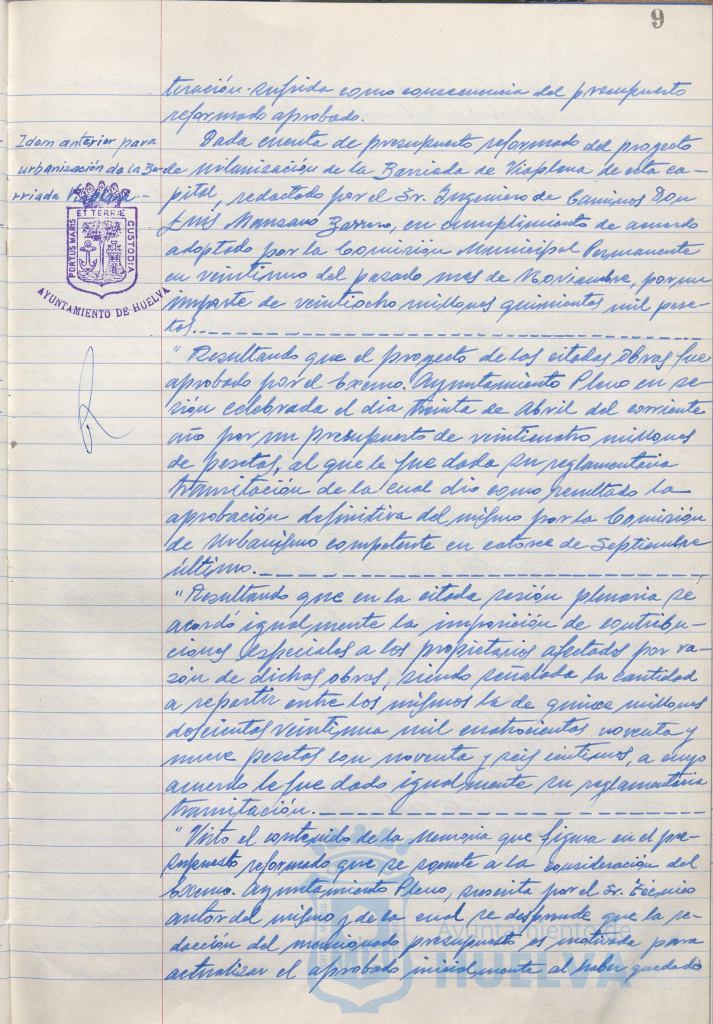 9
teración sufrida como consecuencia del presupuesto
reformado aprobado.
Idem anterior para
urbanización de la Ba-
rriada
PORTUS MARIS ET TERRÆ CUSTODIA
AYUNTAMIENTO DE HUELVA
Dada cuenta de presupuesto reformado del proyecto
de urbanización de la Barriada de Viaplana de esta ca-
pital, redactado por el Sr. Ingeniero de Caminos Don
Luis Manzano, en cumplimiento de acuerdo
adoptado por la Comisión Municipal Permanente
en veintiuno del pasado mes de Noviembre, por un
importe de veintiocho millones quinientas mil pese-
tas.
"Resultando que el proyecto de las citadas Obras fue
aprobado por el Excmo. Ayuntamiento Pleno en se-
sión celebrada el día treinta de Abril del corriente
año por un presupuesto de veinticuatro millones
de pesetas, al que le fue dada su reglamentaria
tramitación de la cual dio como resultado la
aprobación definitiva del mismo por la Comisión
de Urbanismo competente en catorce de Septiembre
último.
"Resultando que en la citada sesión plenaria se
acordó igualmente la imposición de contribu-
ciones especiales a los propietarios afectados por ra-
zón de dichas obras, siendo señalada la cantidad
a repartir entre los mismos la de quince millones
doscientas veintiuna mil cuatrocientas noventa y
nueve pesetas con noventa y seis céntimos, a cuyo
acuerdo le fue dado igualmente su reglamentaria
tramitación.
"Visto el contenido de la Memoria que figura en el pre-
supuesto reformado que se somete a la consideración del
Excmo. Ayuntamiento Pleno, suscrita por el Sr. Técnico
autor del mismo y de la cual se desprende que la re-
dacción del mencionado presupuesto es motivada para
actualizar el aprobado inicialmente al haber quedado
Ayuntamiento de
HUELVA